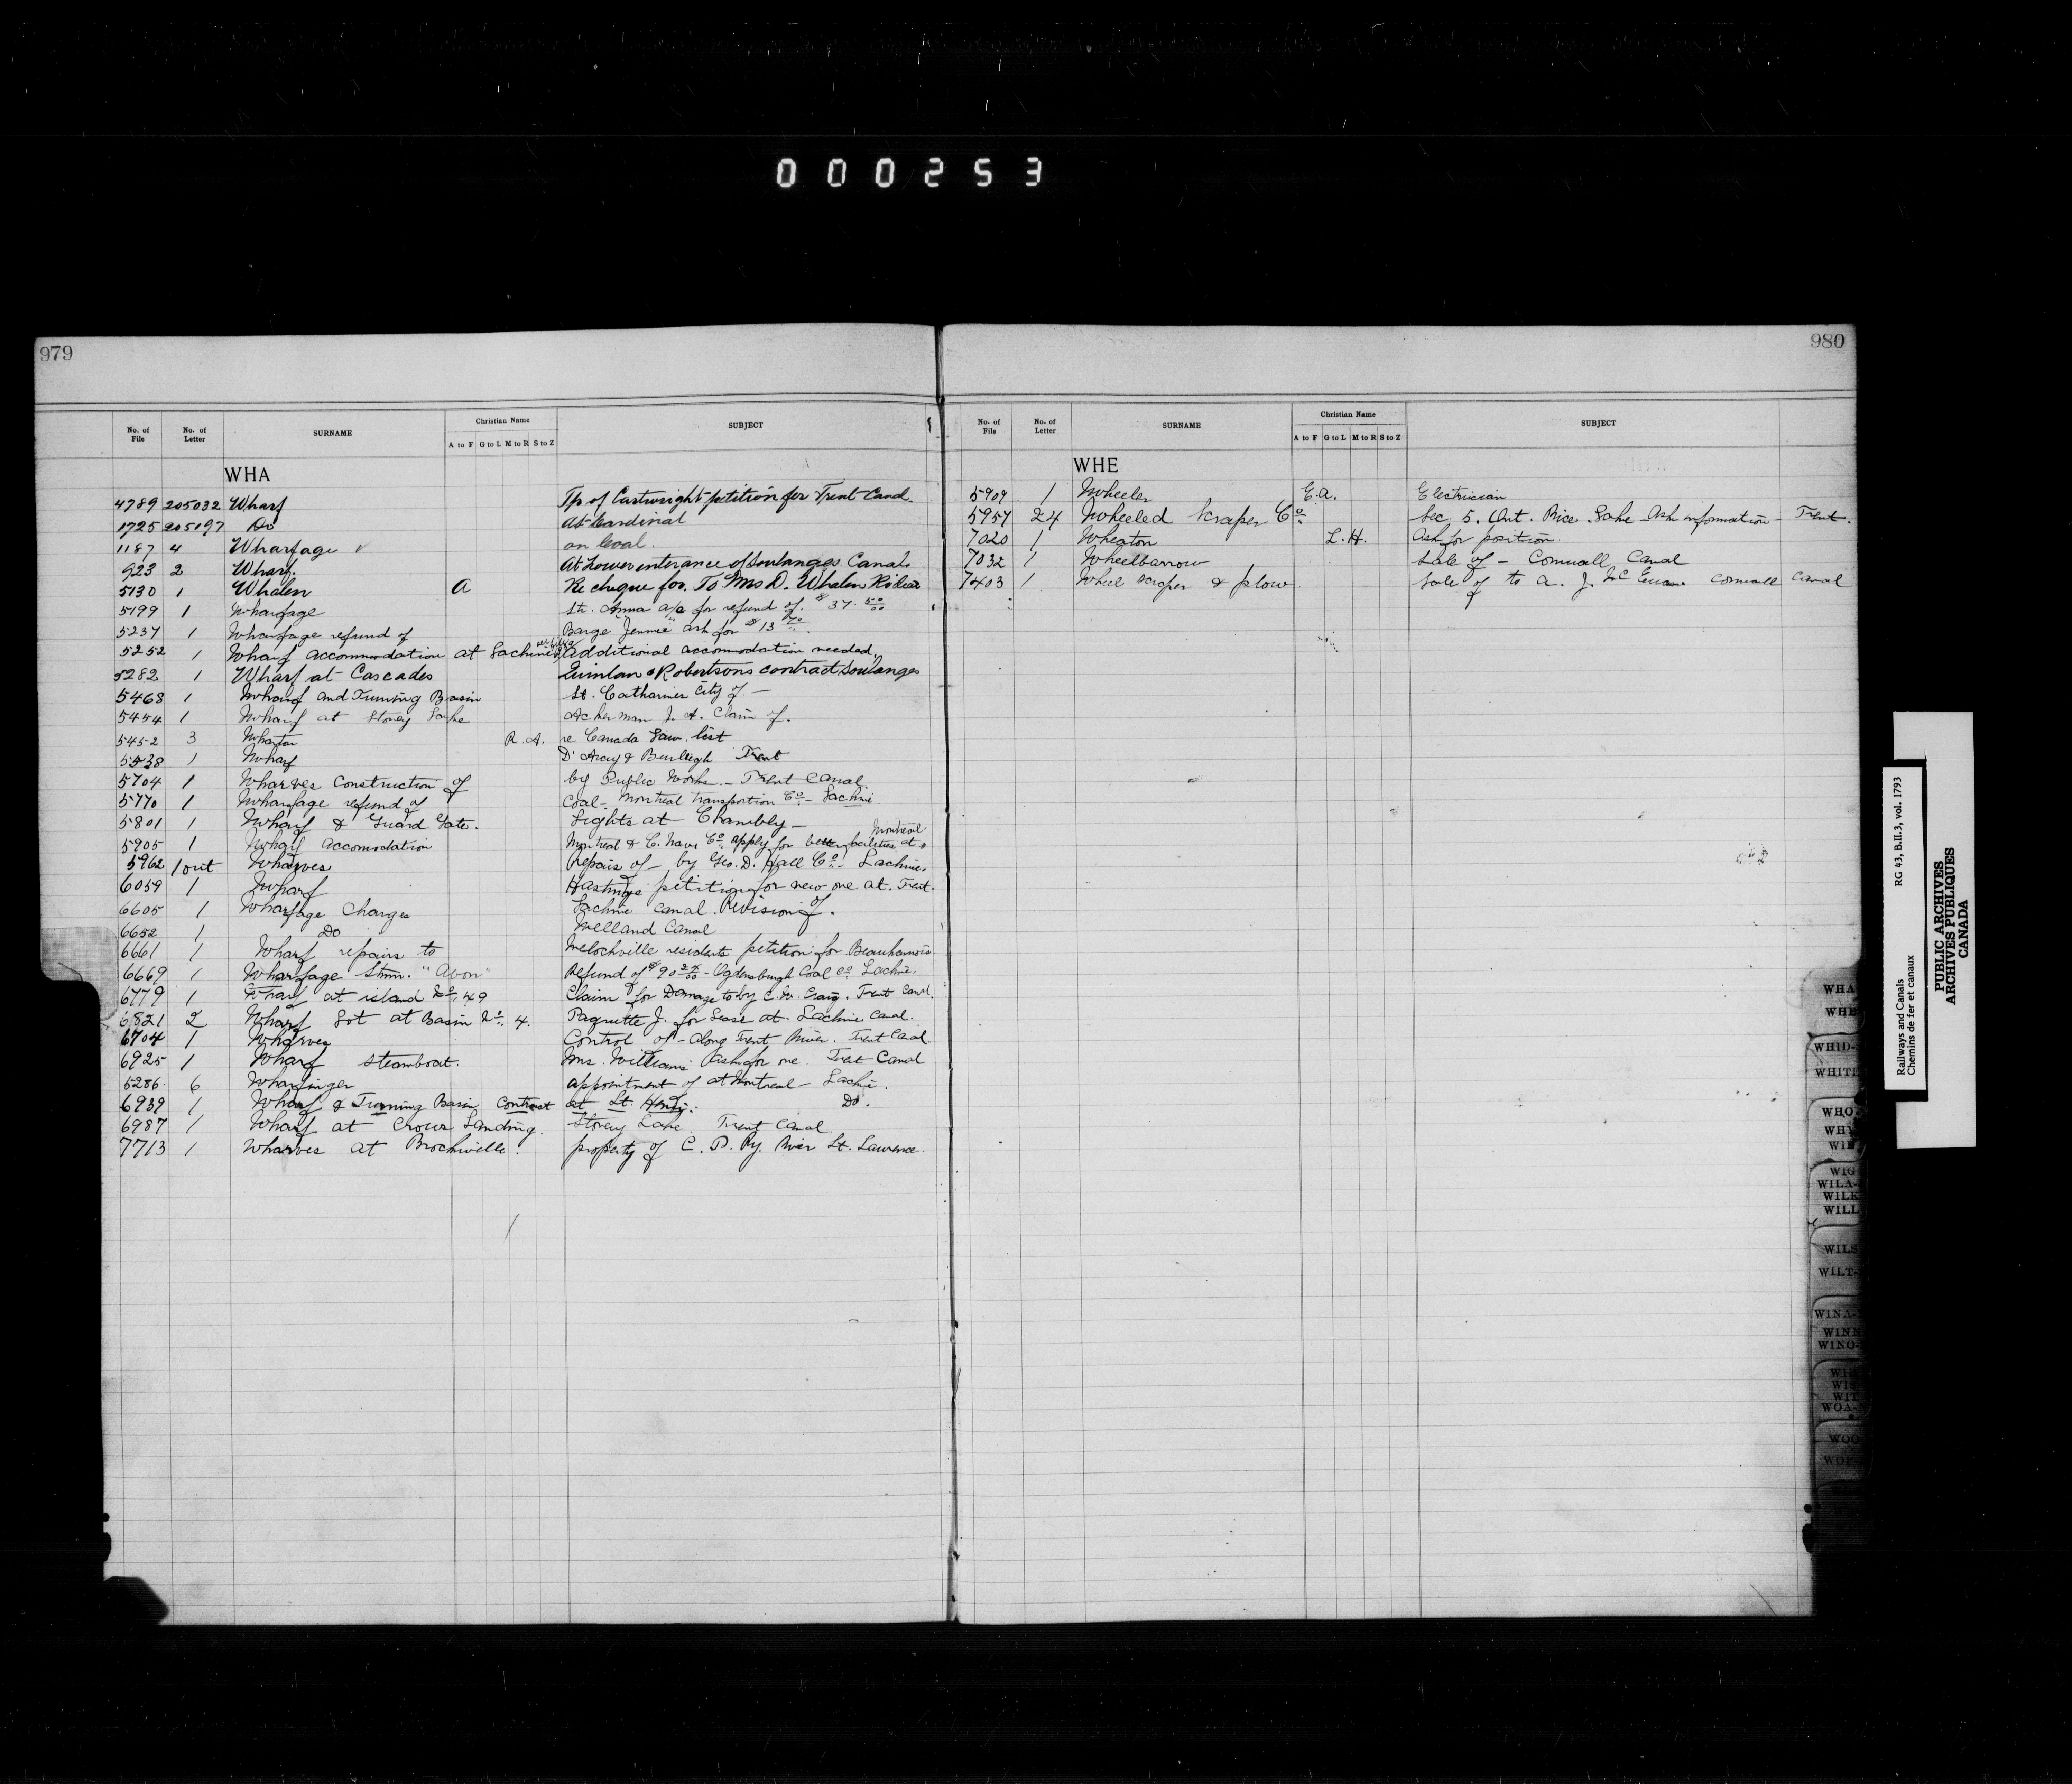 000253
979
No. of File No. of Letter SURNAME Christian Name A to F G to L M to R S to Z SUBJECT
WHA
4789 205032 Wharf Tp. of Cartwright petition for Trent Canal.
1725 205197 Do At Cardinal
1187 4 Wharfage on Coal.
923 2 Wharf. At Lower enterance of Soulanges Canal.
5130 1 Whalen A Re cheque for. To Mrs D. Whalen Rideau
5199 1 Wharfage Str. Anna a/c for refund of. $37. 50/00
5237 1 Wharfage refund of Barge "Jennie" ask for $13 70/..
5252 1 Wharf accommodation at Lachine Additional accomodation needed.
5282 1 Wharf at Cascades Quinlan & Robertsons contract Soulanges
5468 1 Wharf and Turning Basin St. Catharines City of —
5454 1 Wharf at Stoney Lake Ackerman J. A. Claim of.
5452 3 Wharton R. A. re Canada Law list
5538 1 Wharf D'Arcy & Burleigh Trent
5704 1 Wharves Construction of by Public Works — Trent Canal
5770 1 Wharfage refund of Coal — Montreal Transportion Co. — Lachine
5801 1 Wharf & Guard Gate. Lights at Chambly —
5905 1 Wharf Accomodation Montreal & C. Nav. Co. apply for better facilities at Montreal
5962 1 out Wharves Repairs of — by Geo. D. Hall Co. Lachine.
6059 1 Wharf Hastings petition for new one at. Trent.
6605 1 Wharfage Charges Lachine Canal. Revision of.
6652 1 Do Welland Canal
6661 1 Wharf repairs to Melochville residents petition for Beauharnois
6669 1 Wharfage Stmr. "Avon" Refund of $90 — Ogdensburgh Coal Co. Lachine.
6779 1 Wharf at island No. 49 Claim for Damage to by C. W. Craig. Trent Canal.
6821 2 Wharf Lot at Basin No. 4. Paquette J. for Lease at. Lachine Canal.
6704 1 Wharves Control of — Along Trent River. Trent Canal.
6925 1 Wharf Steamboat. Mrs. Williams Ask for one Trent Canal
5286 6 Wharfinger appointment of at Montreal — Lachine.
6939 1 Wharf & Turning Basin Contract at St. Henri. Do.
6987 1 Wharf at Crowes Landing. Stoney Lake. Trent Canal.
7713 1 Wharves at Brockville. property of C. P. Ry. River St. Lawrence.
980
No. of File No. of Letter SURNAME Christian Name A to F G to L M to R S to Z SUBJECT
WHE
5909 1 Wheeler E.A. Electrician
5957 24 Wheeled Scraper Co. Sec. 5. Ont. Rice Lake Ask information — Trent.
7020 1 Wheaton L.H. Ask for position.
7032 1 Wheelbarrow Sale of — Cornwall Canal
7403 1 Wheel Scraper & plow Sale of to A. J. Cornwall Canal
WHA
WHE
WHID-
WHITE
WHO
WHY
WIE
WIG
WILA-
WILK
WILL
WILS
WILT-
WINA-
WINN
WINO-
WIS
WIT
WOA-
WOO
Railways and Canals RG 43, B.II.3, vol. 1793
Chemins de fer et canaux
PUBLIC ARCHIVES
ARCHIVES PUBLIQUES
CANADA